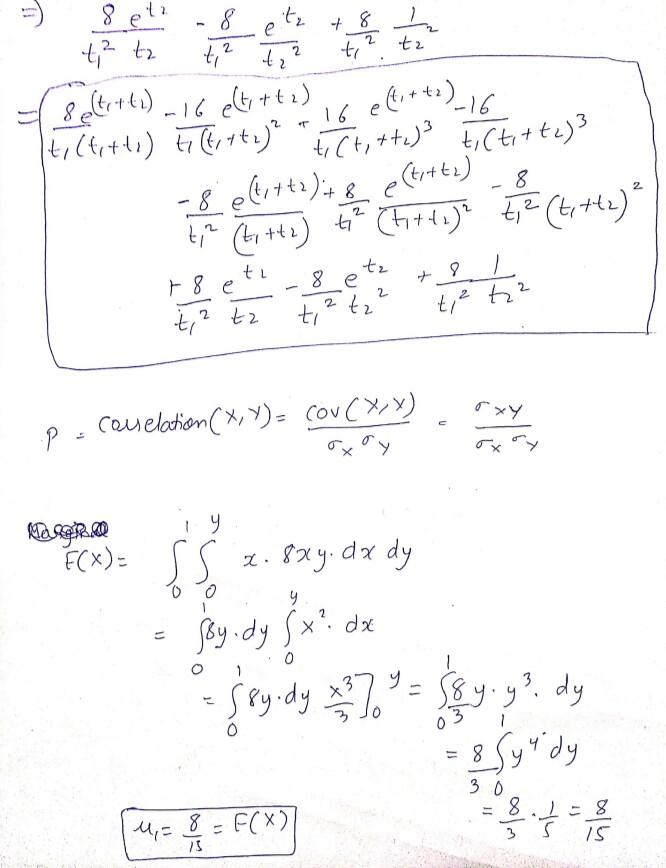 ⇒) 8 e^t₂ / t₁² t₂ - 8/t₁² e^t₂/t₂² + 8/t₁² . 1/t₂²
= 8e^(t₁+t₂) / t₁(t₁+t₂) - 16 e^(t₁+t₂) / t₁(t₁+t₂)² + 16 e^(t₁+t₂) / t₁(t₁+t₂)³ - 16 / t₁(t₁+t₂)³
- 8/t₁² e^(t₁+t₂)/(t₁+t₂) + 8/t₁² e^(t₁+t₂)/(t₁+t₂)² - 8/t₁² (t₁+t₂)²
+ 8/t₁² e^t₂/t₂ - 8/t₁² e^t₂/t₂² + 8/t₁² 1/t₂²
ρ = correlation(X,Y) = cov(X,Y) / σx σy = σxy / σx σy
E(X) = ∫₀¹ ∫₀^y x. 8xy. dx dy
= ∫₀¹ 8y.dy ∫₀^y x². dx
= ∫₀¹ 8y.dy x³/3 ]₀^y = ∫₀¹ 8/3 y. y³. dy
= 8/3 ∫₀¹ y⁴ dy
= 8/3 . 1/5 = 8/15
μ₁ = 8/15 = E(X)